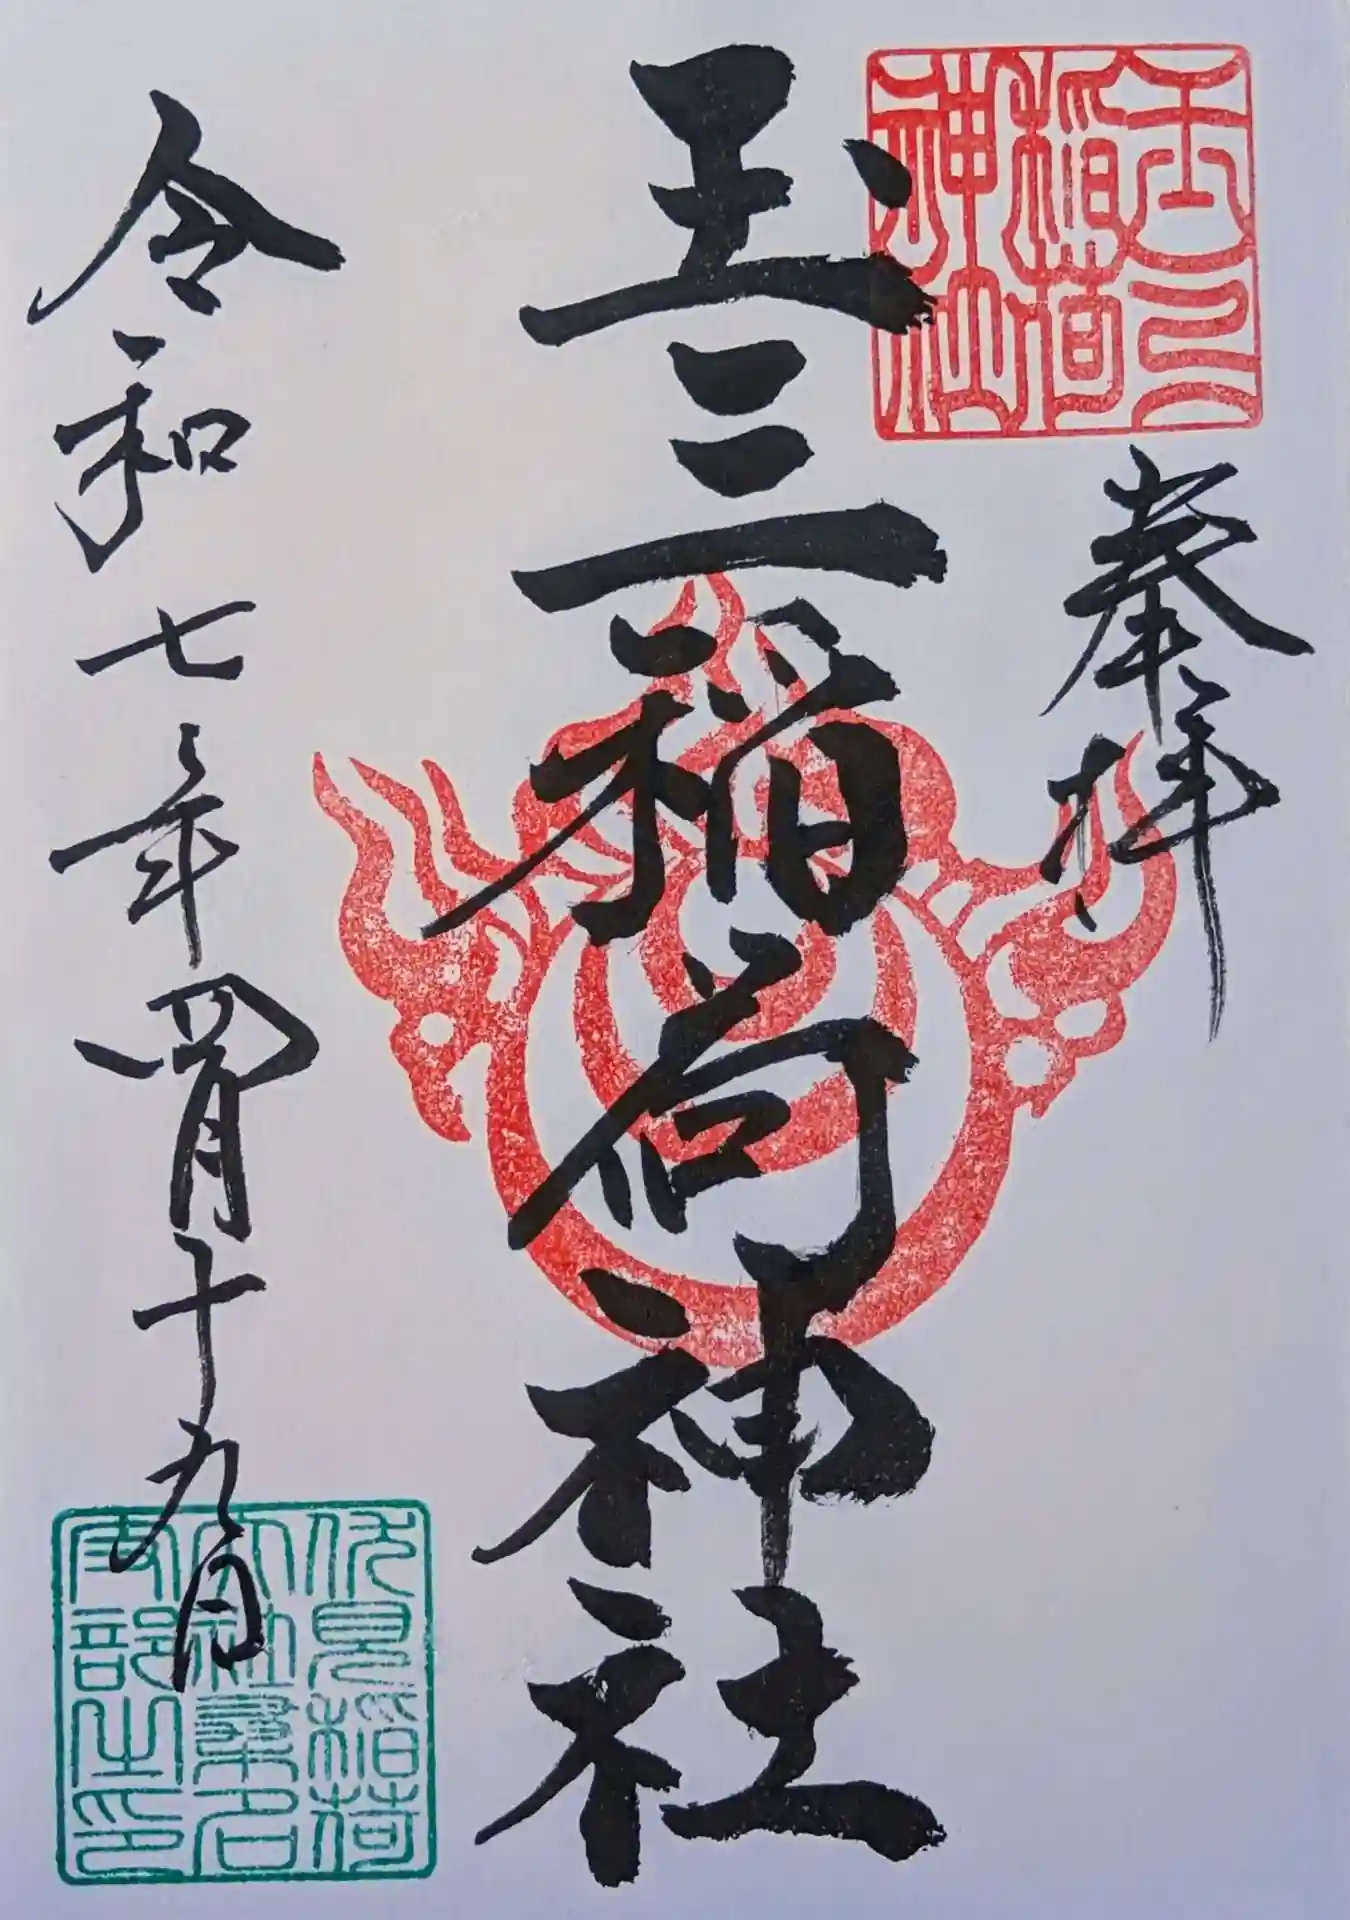 奉拝
玉三稲荷神社
令和七年四月十九日
玉三
稲荷
神社
伏見稲荷
大社桑名
支部之印